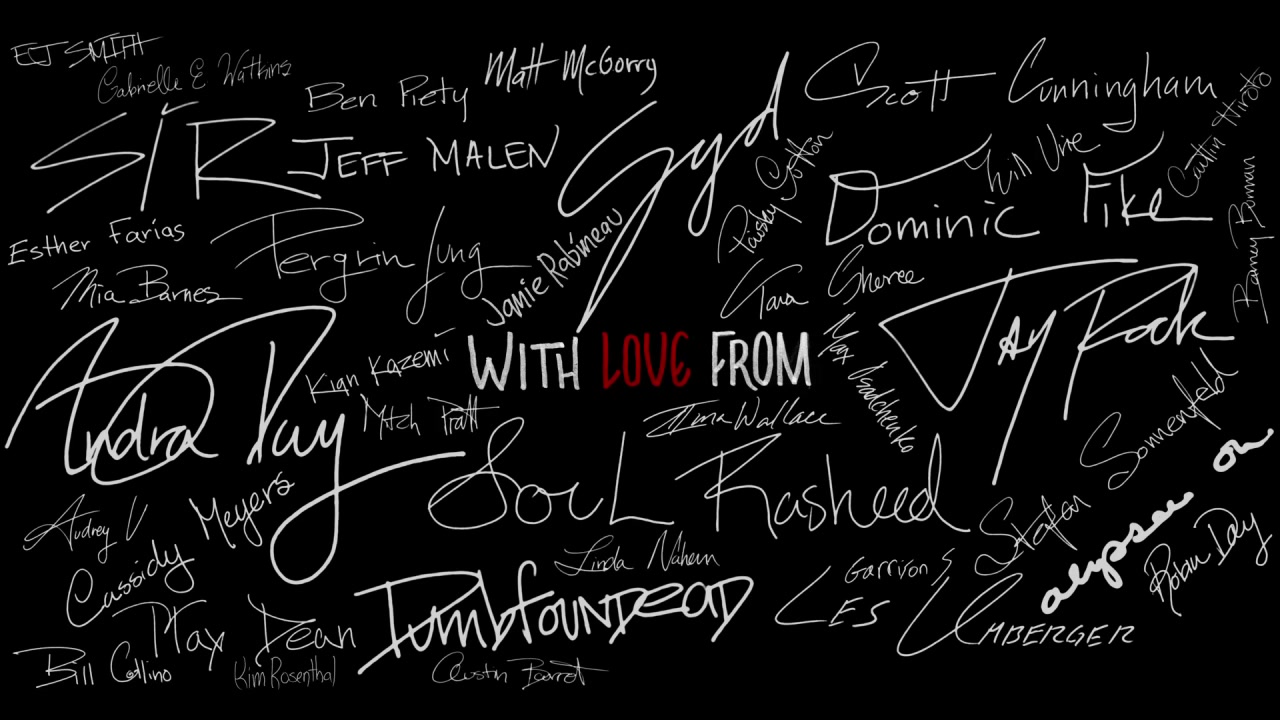 ECJ SMITH
Gabrielle E Watkins
Matt McGorry
Ben Piety
Scott Cunningham
SIR
JEFF MALEN
Syd
Paisley Cotton
Will Ure
Caitlin Hiroto
Dominic Fike
Barney Burman
Esther Farias
Pergrin Jung
Jamie Rabineau
Mia Barnes
Tara Sheree
Jay Rock
Andra Day
Kian Kazemi
WITH LOVE FROM
Max Osadchenko
Mitch Pratt
Tima Wallace
Soul Rasheed
Stefan Sonnenfeld
Audrey V
Cassidy Meyers
alypsee on
Linda Nahem
Garrison S
Robin Day
DumbfounDEAD
LES UMBERGER
Max Dean
Bill Collino
Kim Rosenthal
Austin Barrot